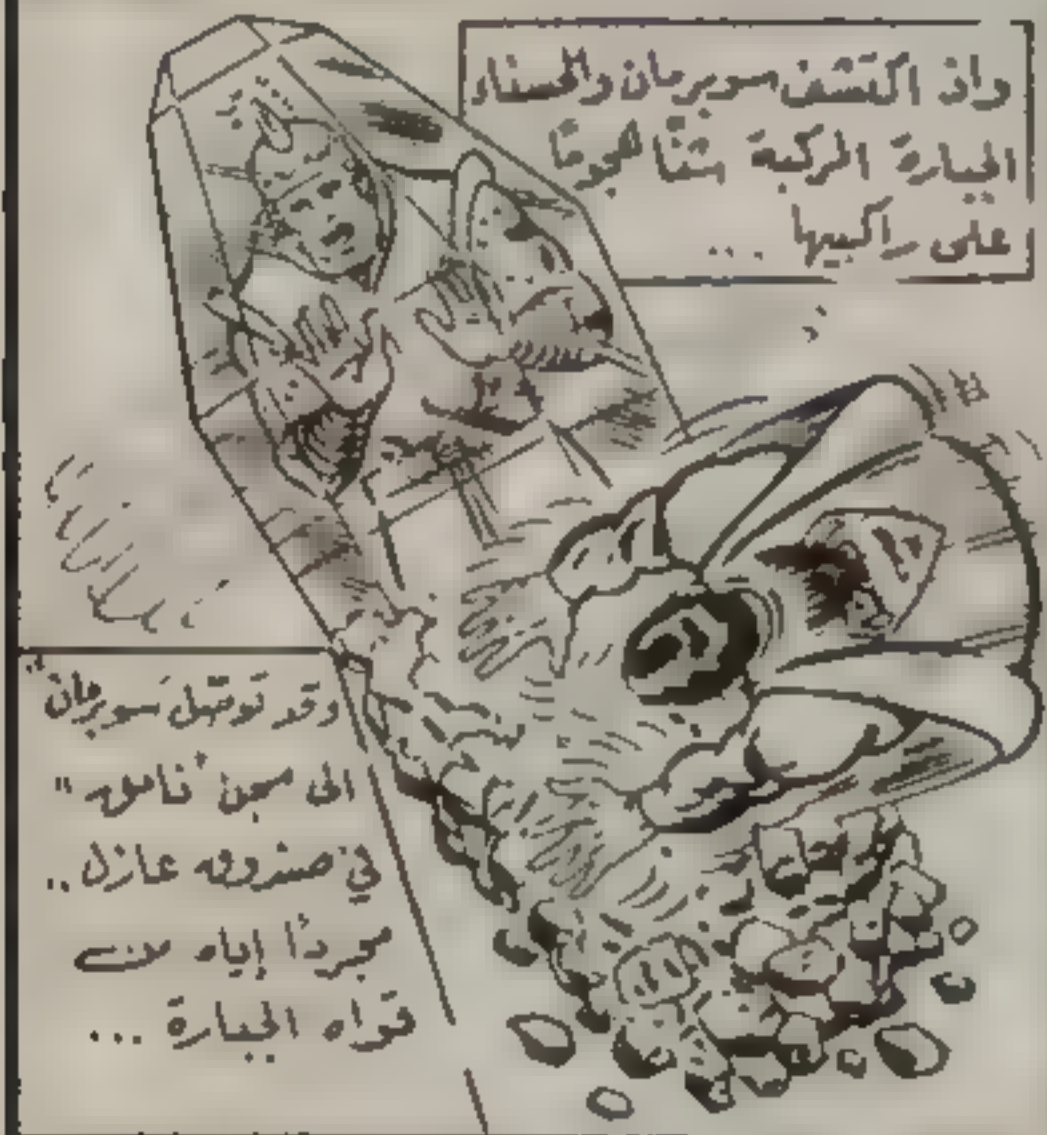 واذ اكتشف سوبرمان والحسناء
الجبارة المركبة شنّا هجومًا
على راكبيها ...
وقد توصّل سوبرمان
الى سجن "نامق"
في صندوق عازل ..
مجردًا إياه من
قواه الجبارة ...